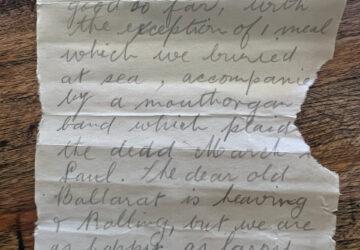 good so far, with
the exception of 1 meal
which we buried
at sea, accompanie
by a mouthorgan
band which plaid
the dead March
Saul. The dear old
Ballarat is heaving
& Rolling, but we are
as happy as